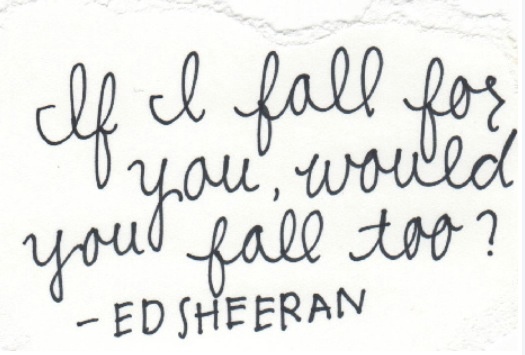 If I fall for
you, would
you fall too?
- ED SHEERAN